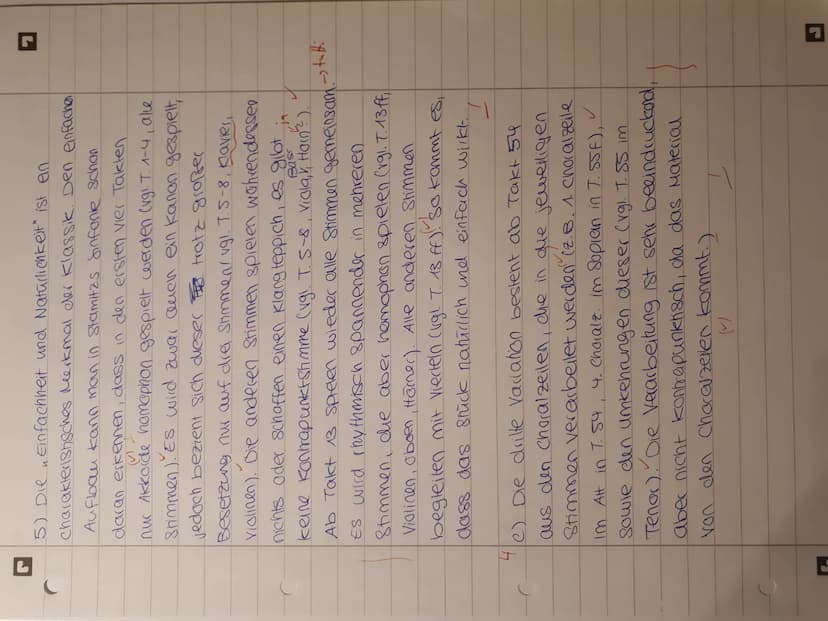 5) Die „Einfachheit und Natürlichkeit" ist ein
charakteristisches Merkmal der Klassik. Den einfachen
Aufbau kann man in Stamitzs Sinfonie schon
daran erkennen, dass in den ersten vier Takten
nur Akkorde homophon gespielt werden (vgl. T 1-4, alle
Stimmen). Es wird zwar auch ein Kanon gespielt,
jedoch bezieht sich dieser trotz großer
Besetzung nur auf drei Stimmen (vgl. T 5-8, Klavier,
Violinen). Die anderen Stimmen spielen währenddessen
nichts oder schaffen einen Klangteppich, es gibt
keine Kontrapunktstimme (vgl. T. 5-8, Viola, Bässe, Horn in
Ab Takt 13 spielen wieder alle Stimmen gemeinsam. → tutti
Es wird rhythmisch spannender in mehreren
Stimmen, die aber homophon spielen (vgl. T. 13ff,
Violinen, Oboen, Hörner). Alle anderen Stimmen
begleiten mit Vierteln (vgl. T. 13 ff). So kommt es,
dass das Stück natürlich und einfach wirkt. !
4
c) Die dritte Variation besteht ab Takt 54
aus den Choralzeilen, die in die jeweiligen
Stimmen verarbeitet werden (z.B. 1 Choralzeile
im Alt in T. 54, 4. Choralz. im Sopran in T. 55f),
sowie den Umkehrungen dieser (vgl. T. 55 im
Tenor). Die Verarbeitung ist sehr beeindruckend,
aber nicht kontrapunktisch, da das Material
von den Choralzeilen kommt.)